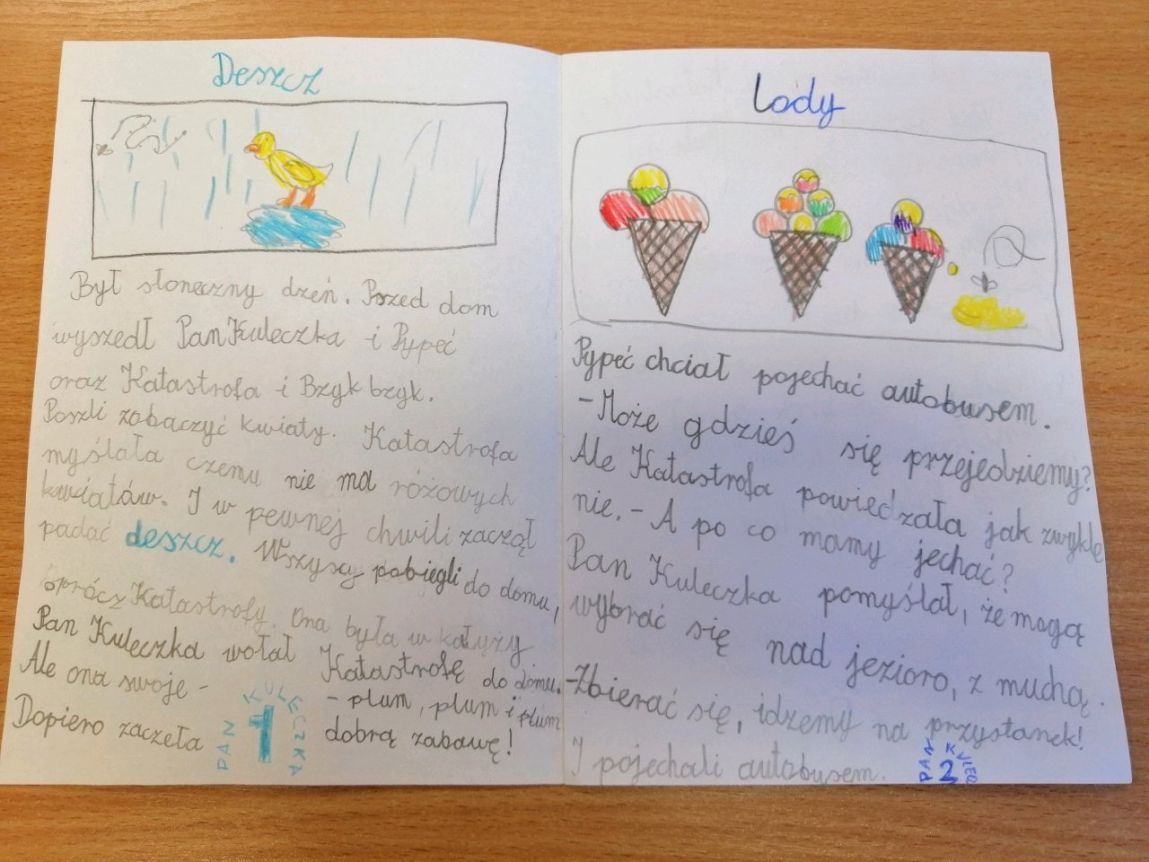 Deszcz
Był słoneczny dzeń. Przed dom
wyszedł Pan Kuleczka i Pypeć
oraz Katastrofa i Bzyk bzyk.
Poszli zobaczyć kwiaty. Katastrofa
myślała czemu nie ma różowych
kwiatów. I w pewnej chwili zaczął
padać deszcz. Wszyscy pobiegli do domu,
oprócz Katastrofy. Ona była w kałuży.
Pan Kuleczka wołał Katastrofę do domu.
Ale ona swoje - - plum, plum i plum
Dopiero zaczeła dobrą zabawę!
PAN 1 KULECZKA
Lody
Pypeć chciał pojechać autobusem.
- Może gdzieś się przejedziemy?
Ale Katastrofa powiedzała jak zwykle
nie. - A po co mamy jechać?
Pan Kuleczka pomyślał, że mogą
wybrać się nad jezioro, z muchą.
- Zbierać się, idzemy na przystanek!
I pojechali autobusem.
PAN 2